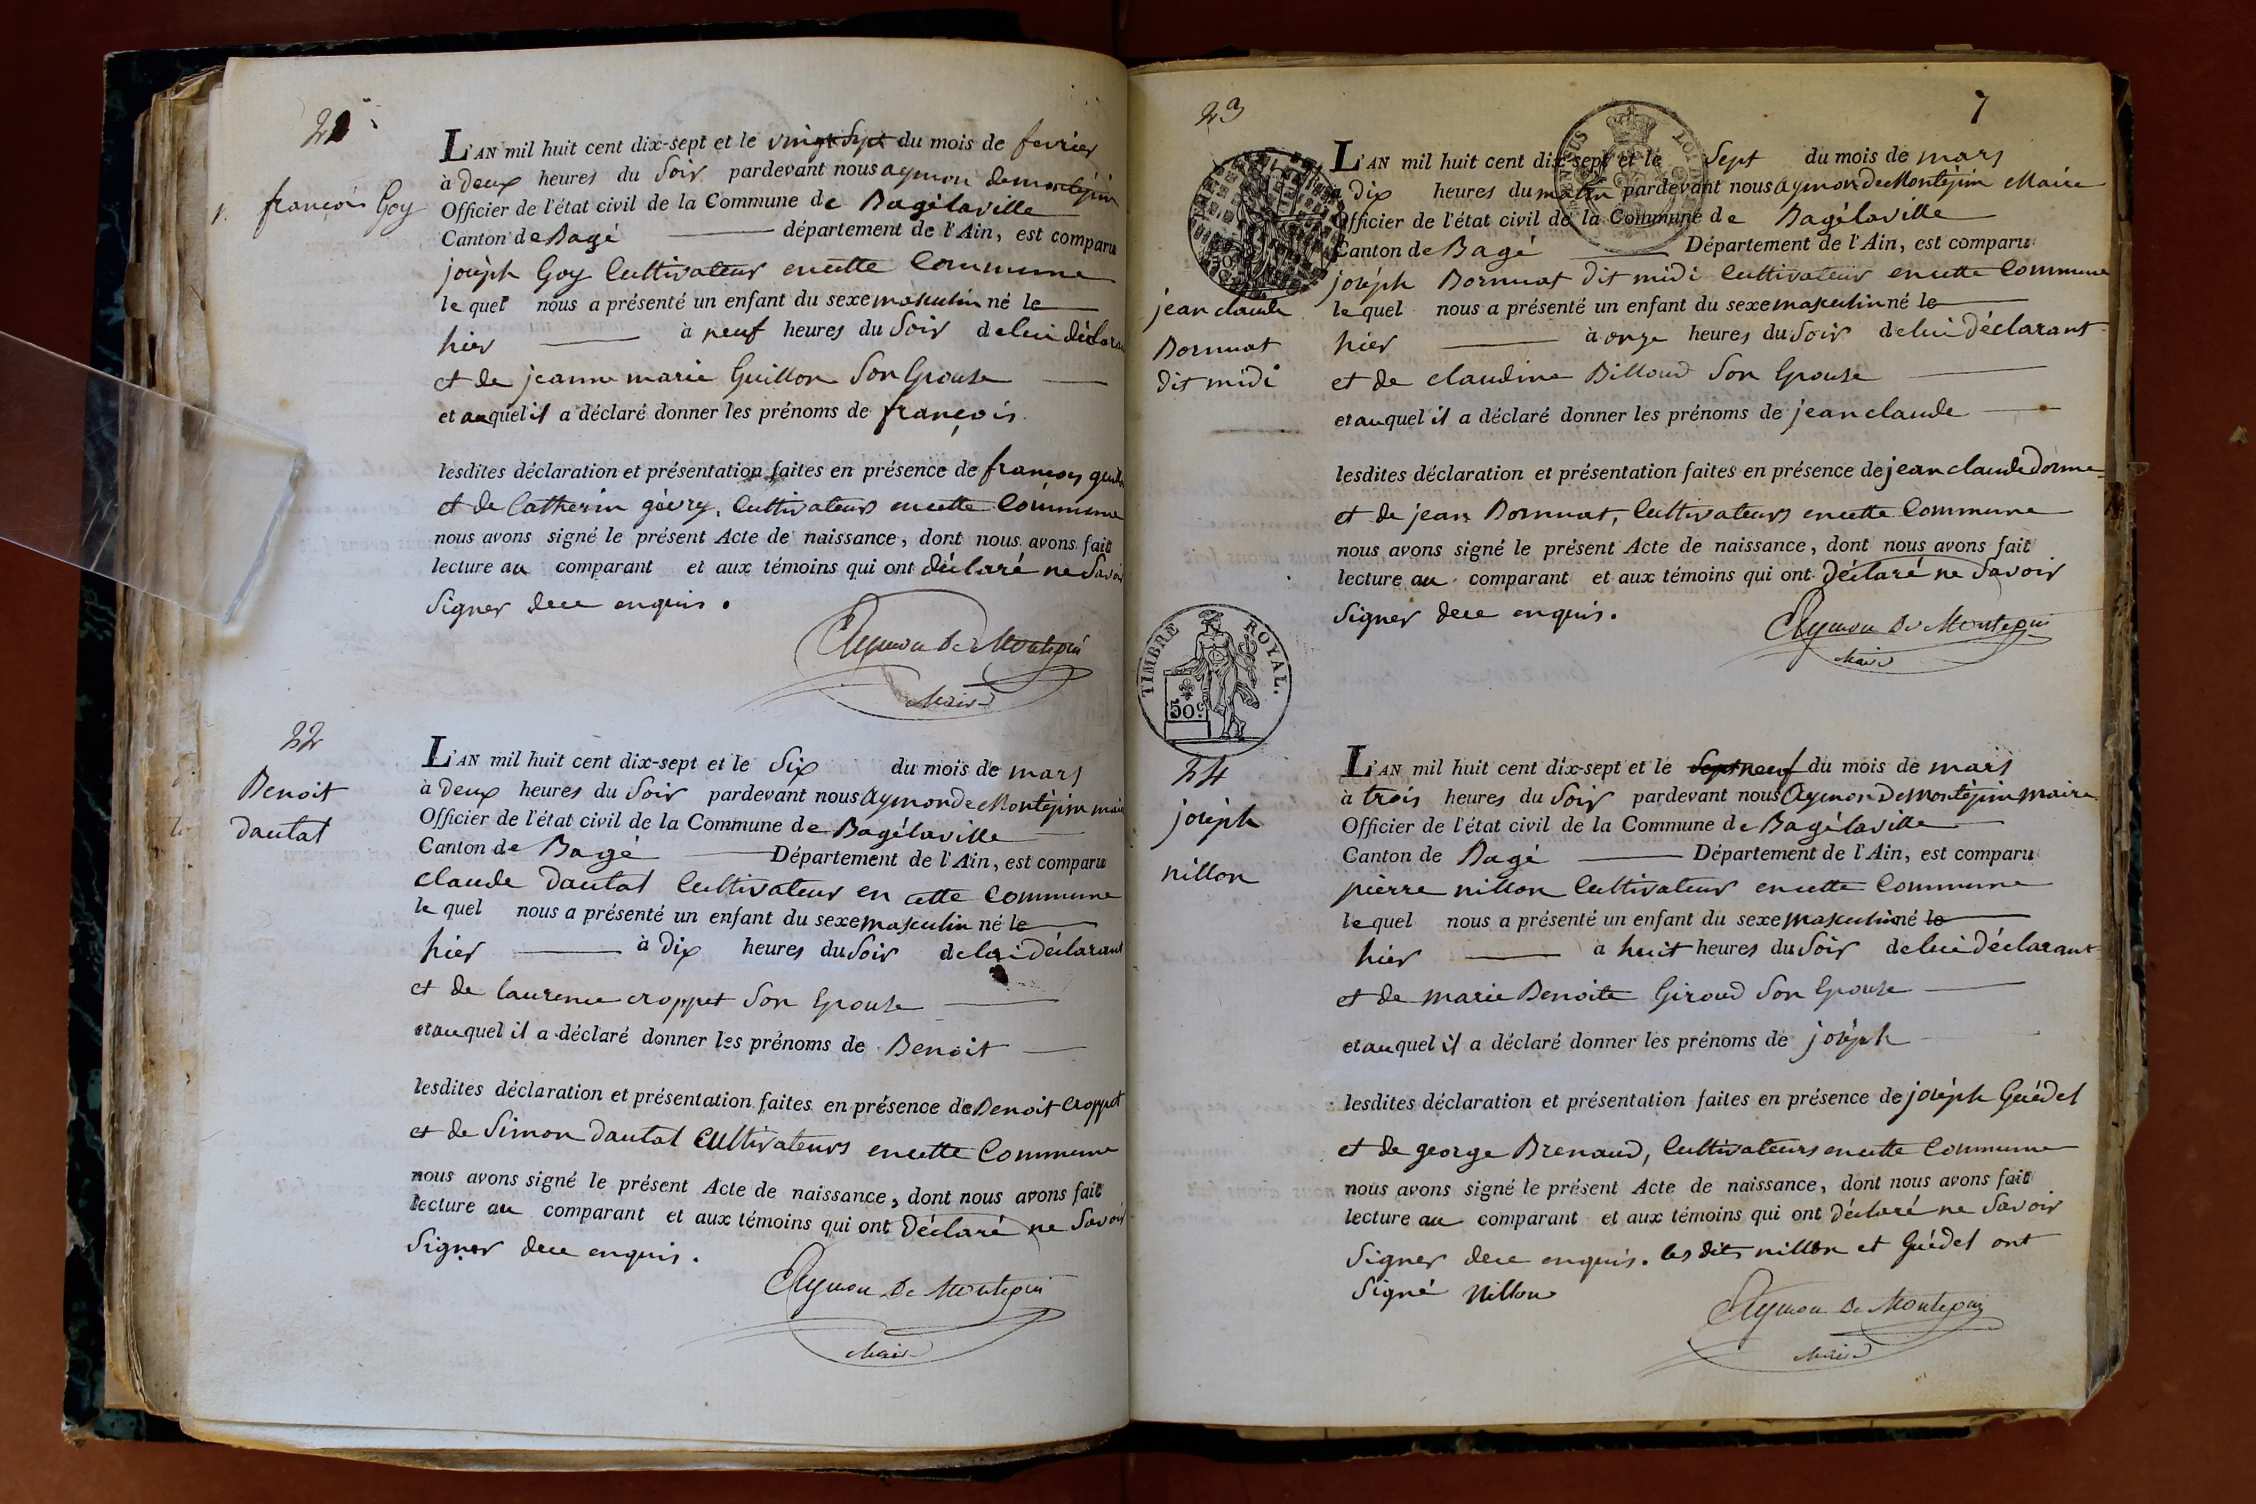 21
françois Goy
L'AN mil huit cent dix-sept et le vingt Sept du mois de fevrier
à deux heures du Soir pardevant nous aymon demontépin
Officier de l'état civil de la Commune de Bagélaville
Canton de Bagé département de l'Ain, est comparu
joséph Goy Cultivateur en cette Commune
le quel nous a présenté un enfant du sexe masculin né le
hier à neuf heures du Soir de lui déclarant
et de jeanne marie Guillon Son Epouse
et auquel il a déclaré donner les prénoms de françois
lesdites déclaration et présentation faites en présence de françois
et de Catherin gévry, Cultivateurs en cette Commune
nous avons signé le présent Acte de naissance, dont nous avons fait
lecture au comparant et aux témoins qui ont déclaré ne Savoir
Signer dece enquis.
Aymon De Montepin
Maire
22
Benoit
dautal
L'AN mil huit cent dix-sept et le Six du mois de mars
à deux heures du Soir pardevant nous Aymon de Montépin maire
Officier de l'état civil de la Commune de Bagélaville
Canton de Bagé Département de l'Ain, est comparu
claude dautal Cultivateur en cette Commune
le quel nous a présenté un enfant du sexe masculin né le
hier à dix heures du Soir de lui déclarant
et de laurence croppet Son Epouse
et auquel il a déclaré donner les prénoms de Benoit
lesdites déclaration et présentation faites en présence de Benoit Croppet
et de Simon dautal Cultivateurs en cette Commune
nous avons signé le présent Acte de naissance, dont nous avons fait
lecture au comparant et aux témoins qui ont Déclaré ne Savoir
Signer dece enquis.
Aymon De Montepin
Maire
23
7
jean claude
Bornuat
dit midi
L'AN mil huit cent dix-sept et le Sept du mois de mars
à dix heures du matin pardevant nous Aymon de Montépin Maire
Officier de l'état civil de la Commune de Bagélaville
Canton de Bagé Département de l'Ain, est comparu
joséph Bornuat dit midi Cultivateur en cette Commune
le quel nous a présenté un enfant du sexe masculin né le
hier à onze heures du Soir de lui déclarant
et de claudine Billoud Son Epouse
et auquel il a déclaré donner les prénoms de jean claude
lesdites déclaration et présentation faites en présence de jean claude
et de jean Bornuat, Cultivateurs en cette Commune
nous avons signé le présent Acte de naissance, dont nous avons fait
lecture au comparant et aux témoins qui ont déclaré ne Savoir
Signer dece enquis.
Aymon De Montepin
Maire
TIMBRE ROYAL.
50c
24
joséph
nillon
L'AN mil huit cent dix-sept et le Sept neuf du mois de mars
à trois heures du Soir pardevant nous Aymon De montépin maire
Officier de l'état civil de la Commune de Bagélaville
Canton de Bagé Département de l'Ain, est comparu
pierre nillon Cultivateur en cette Commune
le quel nous a présenté un enfant du sexe masculin né le
hier à huit heures du Soir de lui déclarant
et de marie Benoite Giroud Son Epouse
et auquel il a déclaré donner les prénoms de joséph
lesdites déclaration et présentation faites en présence de joséph Guédel
et de george Brenaud, Cultivateurs en cette Commune
nous avons signé le présent Acte de naissance, dont nous avons fait
lecture au comparant et aux témoins qui ont déclaré ne Savoir
Signer dece enquis. les dits nillon et Guédel ont
Signé Nillon
Aymon De Montepin
Maire